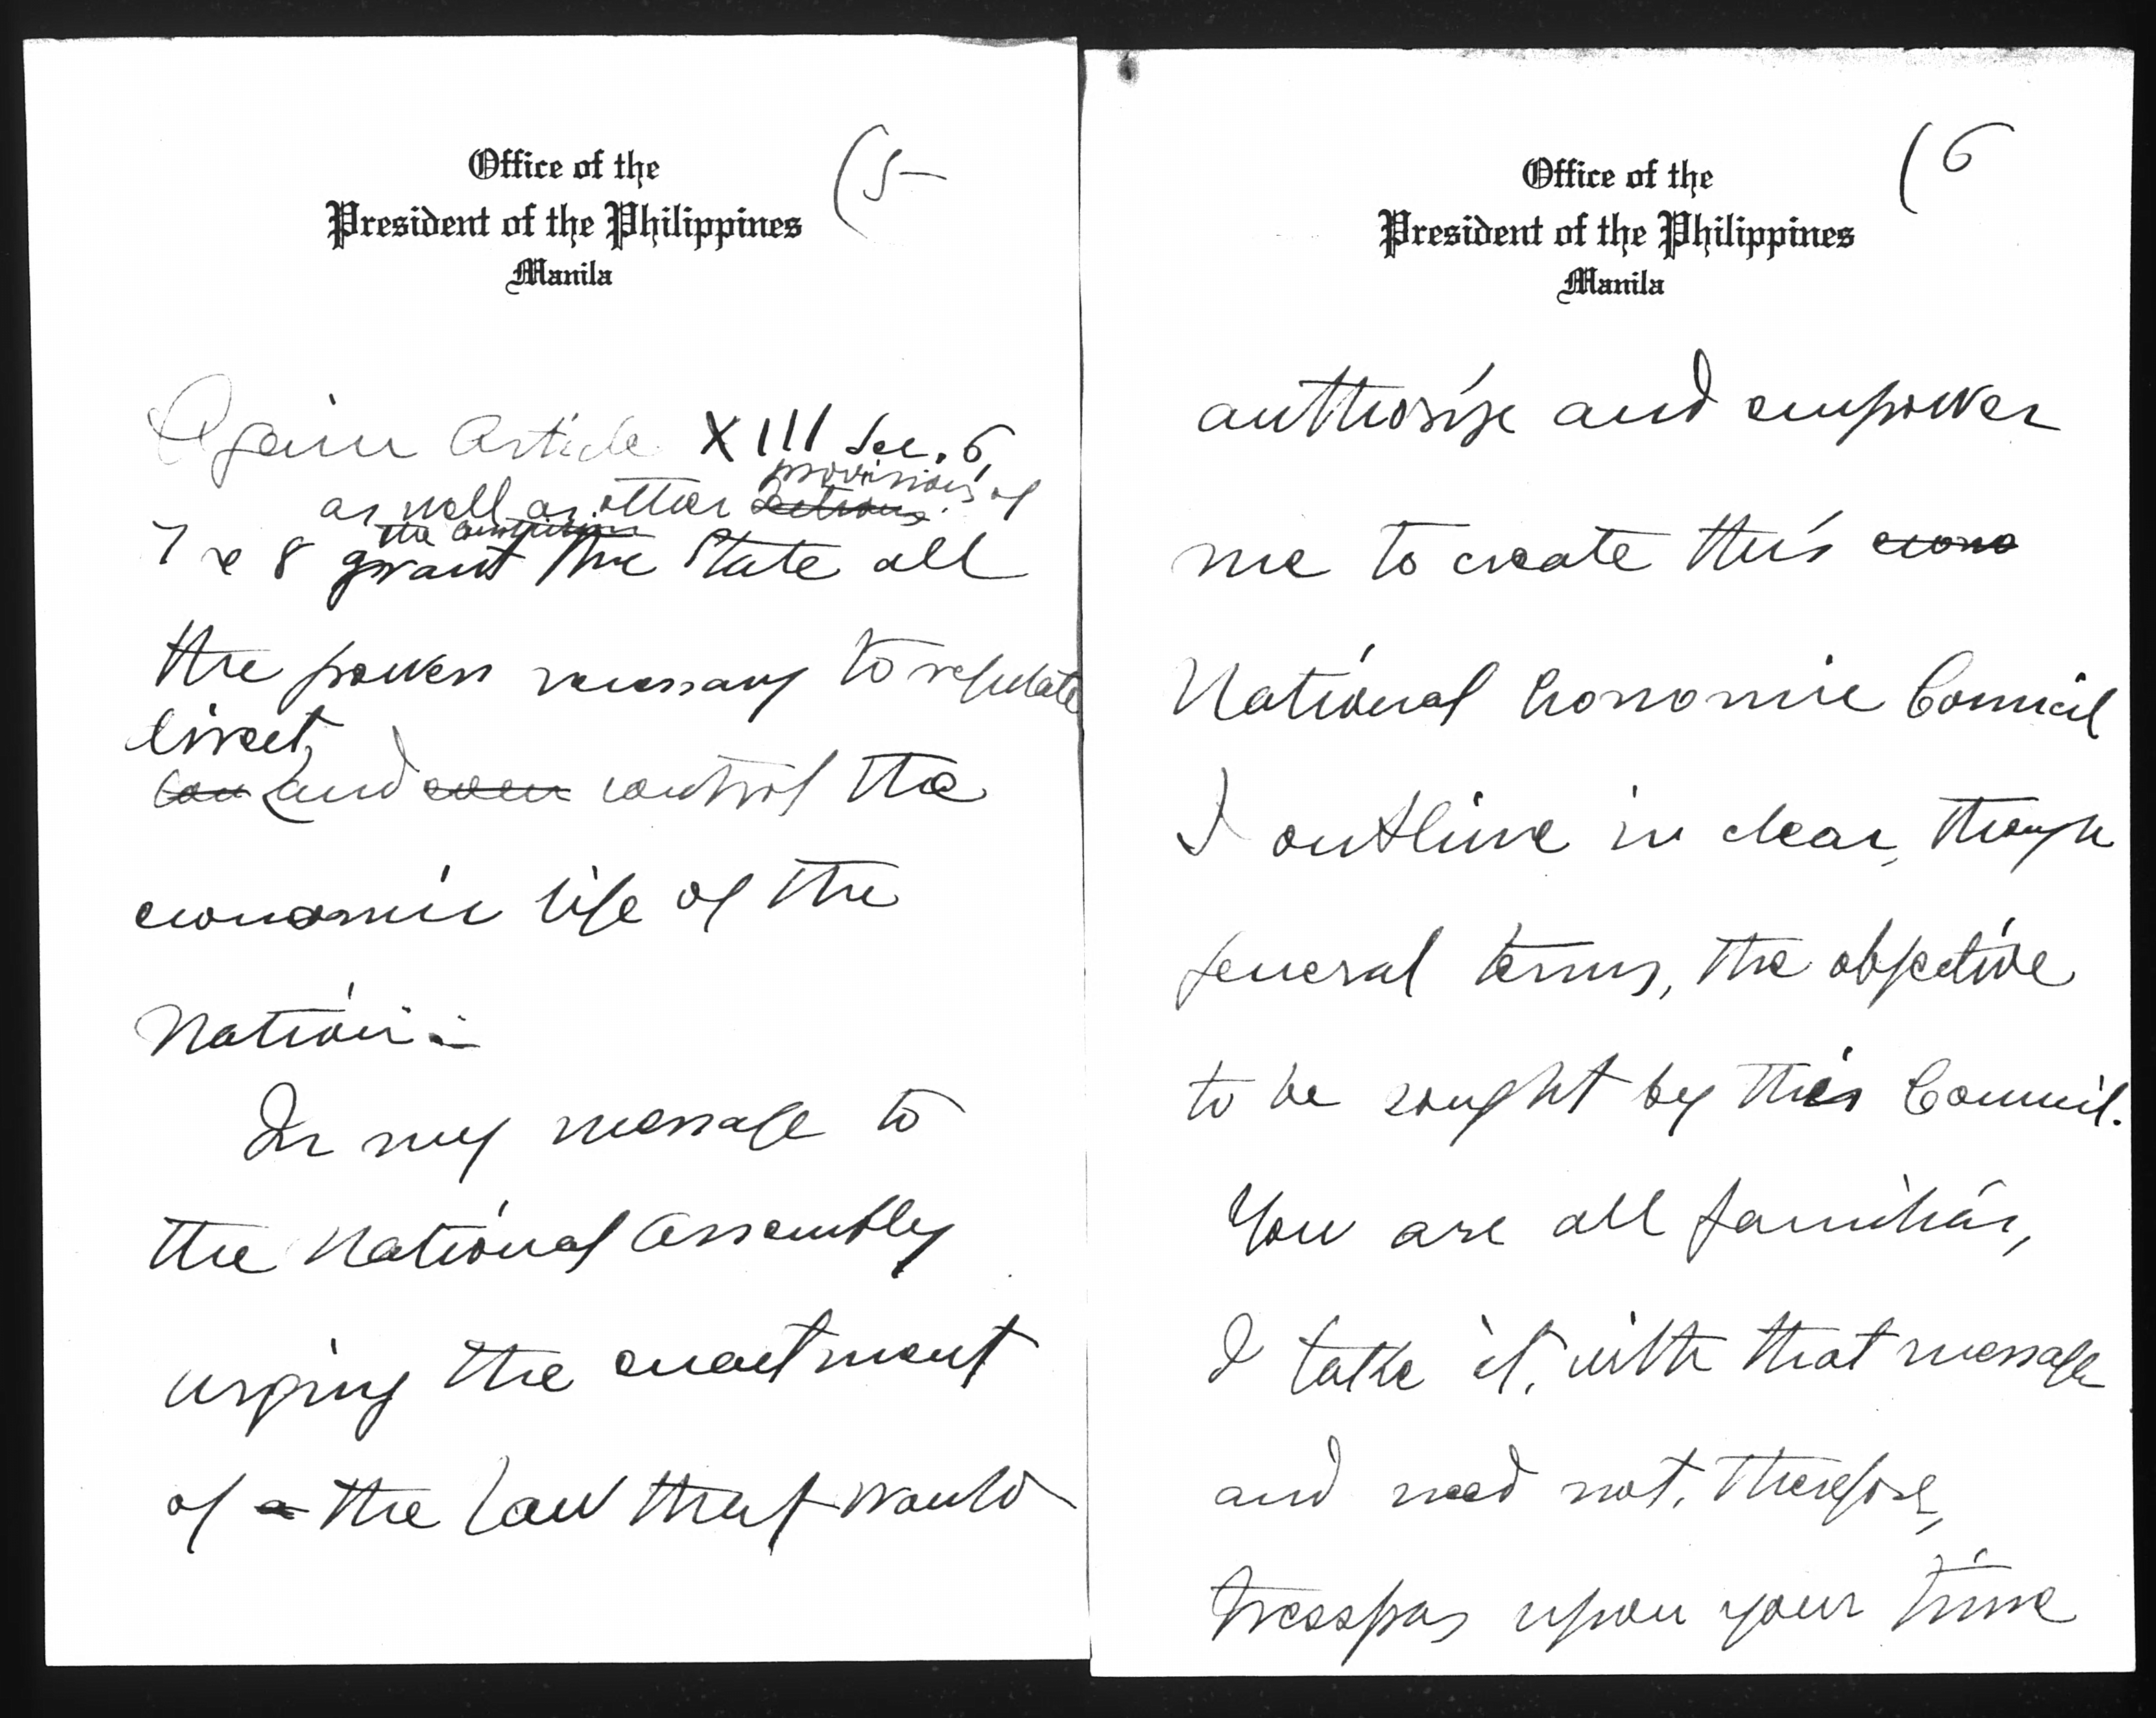 Office of the
President of the Philippines
Manila
(5
Again Article XIII Sec. 6,
provisions of
as well as other sections
the constitution
7 & 8 grant the State all
the powers necessary to regulate
direct,
con and even control the
economic life of the
Nation.
In my message to
the National Assembly
urging the enactment
of a the law that would
Office of the
President of the Philippines
Manila
(6
authorize and empower
me to create this econo
National Economic Council
I outline in clear, though
general terms, the objective
to be sought by this Council.
You are all familiar,
I take it, with that message
and need not, therefore,
tresspas upon your time